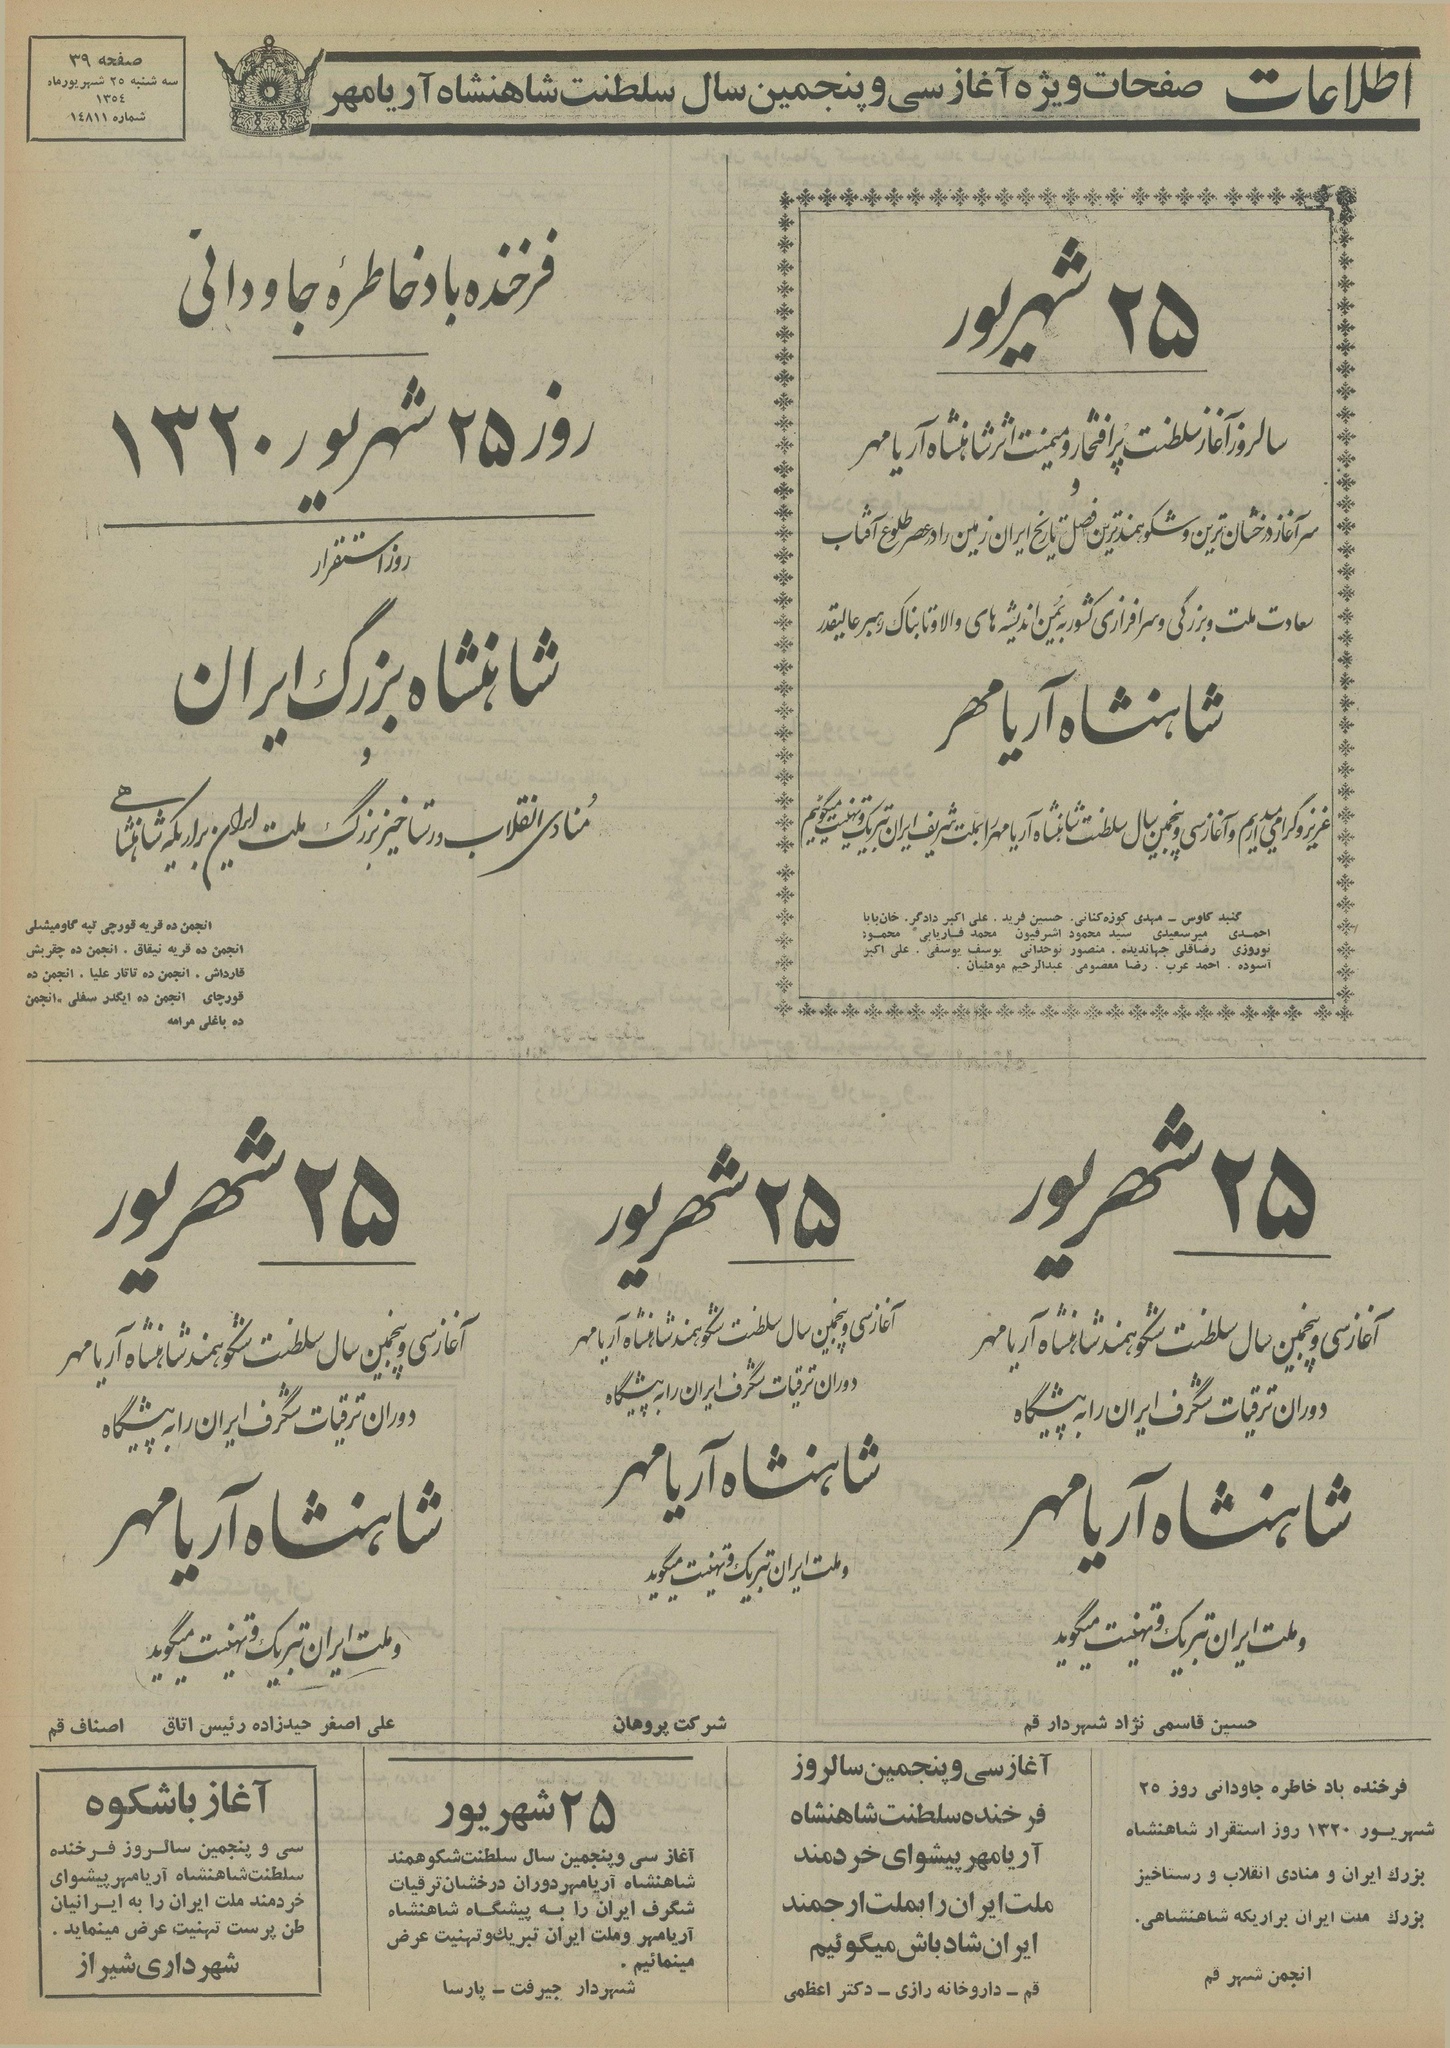 اطلاعات صفحات ویژه آغاز سی و پنجمین سال سلطنت شاهنشاه آریامهر
صفحه ۳۹
سه شنبه ۲۵ شهریورماه
۱۳۵۴
شماره ۱۴۸۱۱
۲۵ شهریور
سالروز آغاز سلطنت پرافتخار و میمنت اثر شاهنشاه آریامهر
و
سرآغاز درخشان ترین و شکوهمندترین فصل تاریخ ایران زمین را در عصر طلوع آفتاب
سعادت ملت و بزرگی و سرافرازی کشور به یُمن اندیشه های والا و تابناک رهبر عالیقدر
شاهنشاه آریامهر
عزیز و گرامی میداریم و آغاز سی و پنجمین سال سلطنت شاهنشاه آریامهر را بملت شریف ایران تبریک و تهنیت میگوئیم
گنبد کاوس ـ مهدی کوزه‌کنانی. حسین فرید . علی اکبر دادگر. خان‌بابا
احمدی میرسعیدی سید محمود اشرفیون محمد فاریابی محمود
نوروزی رضاقلی جهاندیده . منصور نوحدانی یوسف یوسفی . علی اکبر
آسوده . احمد عرب . رضا معصومی عبدالرحیم موهلیان .
فرخنده باد خاطرهٔ جاودانی
روز ۲۵ شهریور ۱۳۲۰
روز استقرار
شاهنشاه بزرگ ایران
و
مُنادی انقلاب و رستاخیز بزرگ ملت ایران بر اریکه شاهنشاهی
انجمن ده قریه قورچی تپه گاومیشلی
انجمن ده قریه نیقاق . انجمن ده چقربش
قارداش . انجمن ده تاتار علیا . انجمن ده
قورچای انجمن ده ایگدر سفلی . انجمن
ده باغلی مرامه
۲۵ شهریور
آغاز سی و پنجمین سال سلطنت شکوهمند شاهنشاه آریامهر
دوران ترقیات شگرف ایران را به پیشگاه
شاهنشاه آریامهر
و ملت ایران تبریک و تهنیت میگوید
حسین قاسمی نژاد شهردار قم
۲۵ شهریور
آغاز سی و پنجمین سال سلطنت شکوهمند شاهنشاه آریامهر
دوران ترقیات شگرف ایران را به پیشگاه
شاهنشاه آریامهر
و ملت ایران تبریک و تهنیت میگوید
شرکت پروهان
۲۵ شهریور
آغاز سی و پنجمین سال سلطنت شکوهمند شاهنشاه آریامهر
دوران ترقیات شگرف ایران را به پیشگاه
شاهنشاه آریامهر
و ملت ایران تبریک و تهنیت میگوید
علی اصغر حیدزاده رئیس اتاق اصناف قم
فرخنده باد خاطره جاودانی روز ۲۵
شهریور ۱۳۲۰ روز استقرار شاهنشاه
بزرك ایران و منادی انقلاب و رستاخیز
بزرك ملت ایران براریکه شاهنشاهی.
انجمن شهر قم
آغاز سی و پنجمین سالروز
فرخنده سلطنت شاهنشاه
آریامهر پیشوای خردمند
ملت ایران را بملت ارجمند
ایران شادباش میگوئیم
قم ـ داروخانه رازی ـ دکتر اعظمی
۲۵ شهریور
آغاز سی وپنجمین سال سلطنت شکوهمند
شاهنشاه آریامهر دوران درخشان ترقیات
شگرف ایران را به پیشگاه شاهنشاه
آریامهر وملت ایران تبریك‌وتهنیت عرض
مینمائیم .
شهردار جیرفت ـ پارسا
آغاز باشکوه
سی و پنجمین سالروز فرخنده
سلطنت شاهنشاه آریامهر پیشوای
خردمند ملت ایران را به ایرانیان
طن پرست تهنیت عرض مینماید .
شهرداری شیراز